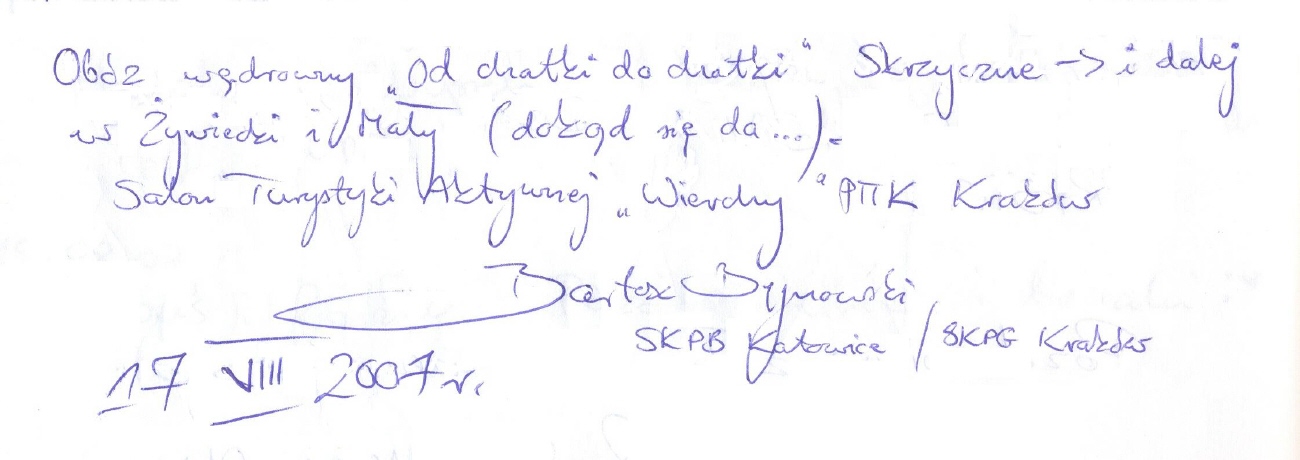 Obóz wędrowny „Od chatki do chatki" Skrzyczne -> i dalej
w Żywiecki i Mały (dokąd się da...).
Salon Turystyki Aktywnej „Wierchy" PTTK Kraków
Bartosz
SKPB Katowice / SKPG Kraków
17 VIII 2007 r.